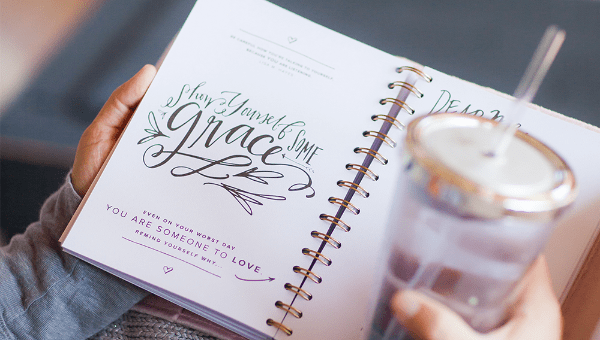 Show Yourself SOME
Grace
EVEN ON YOUR WORST DAY
YOU ARE SOMEONE TO LOVE.
REMIND YOURSELF WHY...
DEAR